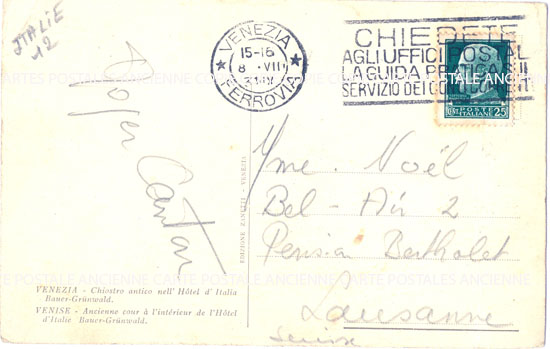 ITALIE
12
VENEZIA
15-16
8 VII
FERROVIA
CHIEDETE
AGLI UFFICI POSTAL
LA GUIDA PR
SERVIZIO DEI CON
POSTE
ITALIANE
25
Roger Cantan
EDIZIONE ZANETTI - VENEZIA
Mme. Noël
Bel-Air 2
Pension Bertholet
Lausanne
Suisse
VENEZIA - Chiostro antico nell' Hôtel d' Italia
Bauer-Grünwald.
VENISE - Ancienne cour à l'intérieur de l'Hôtel
d'Italie Bauer-Grünwald.
CARTE POSTALE ANCIENNE CARTE POSTALES ANCIENNE